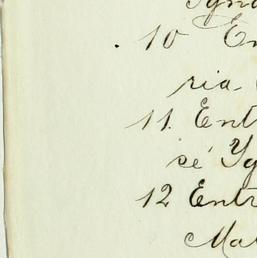 Igna
. 10 En
ria
11. Entr
sé Yg
12 Entr
Ma